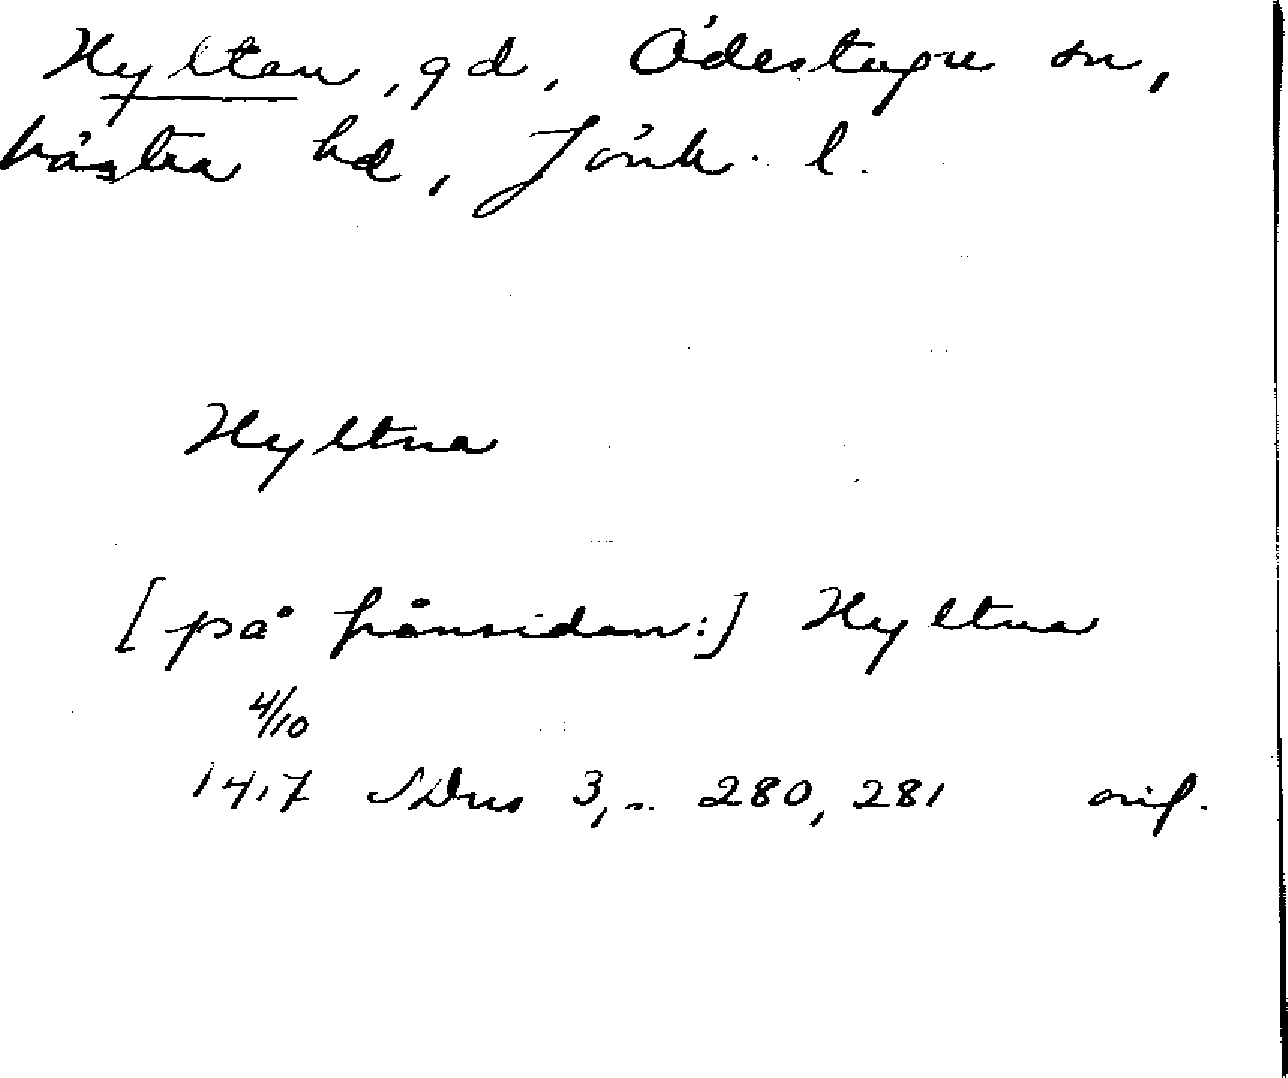 Hyltan, gd, Ödestugu sn,
Västra hd, Jönk. l.
Hyltna
[på frånsidan:] Hyltna
4/10
1417 SDns 3, s. 280, 281 orig.